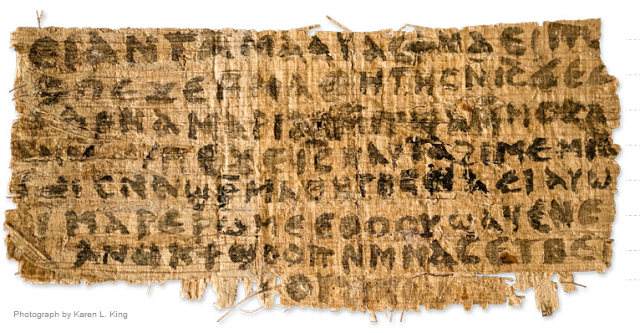 ⲉⲓ ⲁⲛ ⲧⲁⲙⲁⲁⲩ ⲁⲥϯ ⲛⲁⲉⲓ ⲡⲱ
ⲡⲉϫⲉ ⲙⲙⲁⲑⲏⲧⲏⲥ ⲛⲓ̅ⲥ̅ ϫⲉ
ⲁⲣⲛⲁ ⲙⲁⲣⲓⲁⲙ
ⲡⲉϫⲉ ⲓ̅ⲥ̅ ⲛⲁⲩ ⲧⲁϩⲓⲙⲉ ⲙⲛ
ⲙⲁⲑⲏⲧⲏⲥ ⲛⲁⲉⲓ ⲁⲩⲱ
ⲙⲁⲣⲉⲣⲱⲙⲉ ⲉⲑⲟⲟⲩ ϣⲁϥⲉ ⲛⲉ
ⲁⲛⲟⲕ ϯϣⲟⲟⲡ ⲛⲙⲙⲁⲥ ⲉⲧⲃⲉ
Photograph by Karen L. King